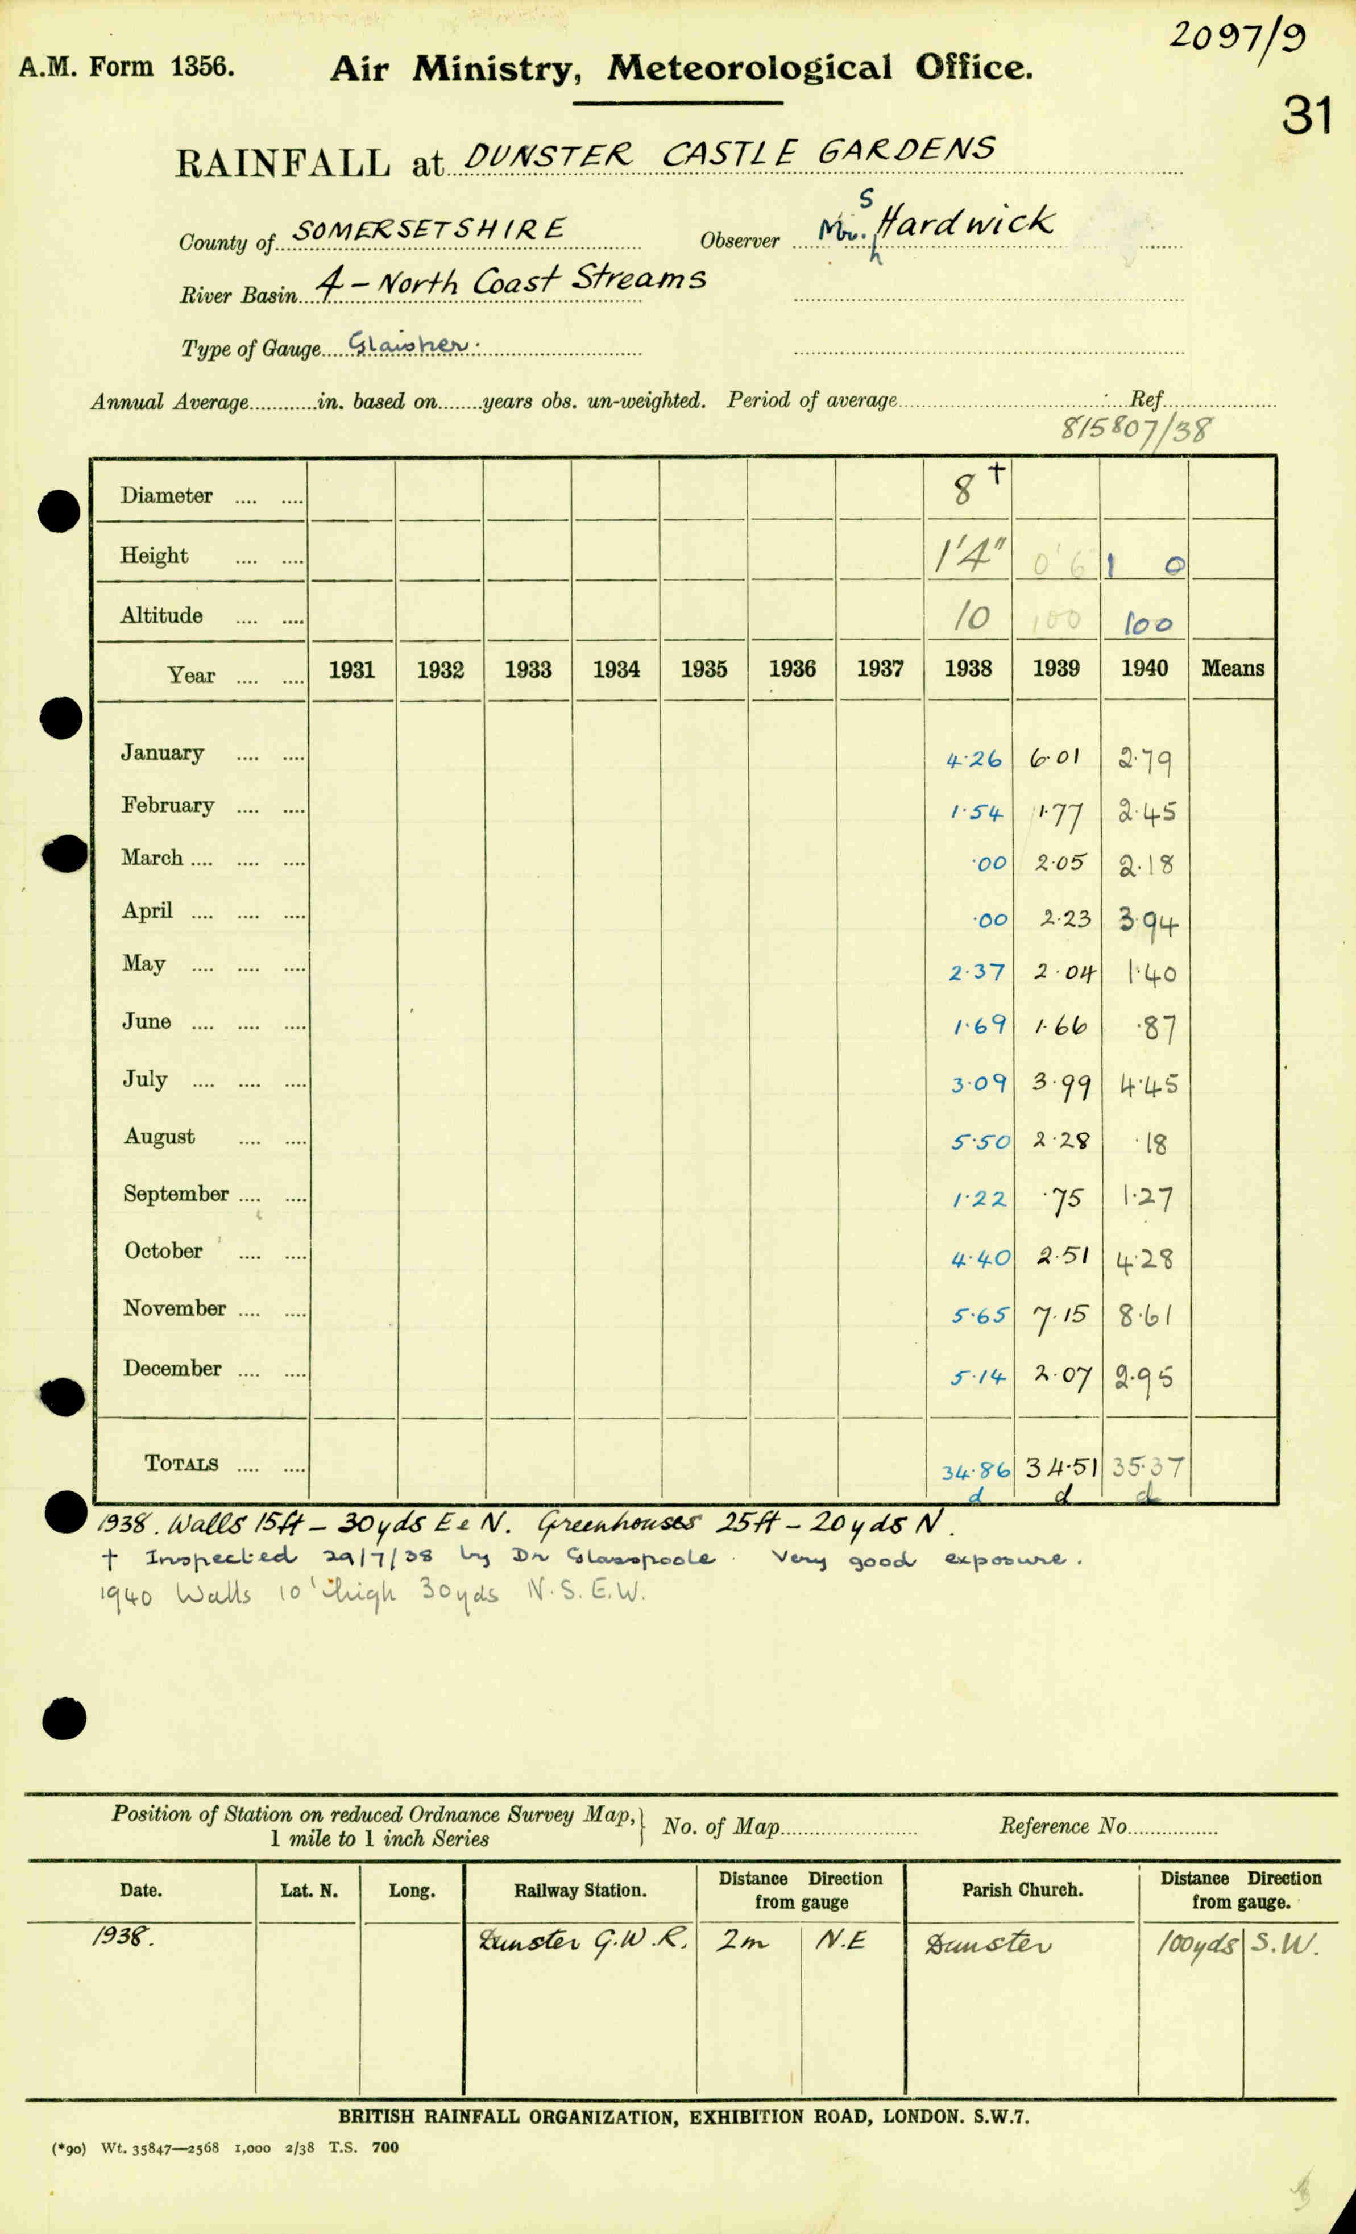 2097/9
A.M. Form 1356. Air Ministry, Meteorological Office.
31
RAINFALL at DUNSTER CASTLE GARDENS
County of SOMERSETSHIRE Observer Mrs. Hardwick
River Basin 4 - North Coast Streams
Type of Gauge Glaisher.
Annual Average............in. based on........years obs. un-weighted. Period of average.......... Ref..........
815807/38
Diameter .... .... 8 †
Height .... .... 1'4" 0'6 1 0
Altitude .... .... 10 100 100
Year .... .... 1931 1932 1933 1934 1935 1936 1937 1938 1939 1940 Means
January .... .... 4·26 6·01 2·79
February .... .... 1·54 1·77 2·45
March .... .... .... ·00 2·05 2·18
April .... .... .... ·00 2·23 3·94
May .... .... .... 2·37 2·04 1·40
June .... .... .... 1·69 1·66 ·87
July .... .... .... 3·09 3·99 4·45
August .... .... 5·50 2·28 ·18
September .... .... 1·22 ·75 1·27
October .... .... 4·40 2·51 4·28
November .... .... 5·65 7·15 8·61
December .... .... 5·14 2·07 2·95
TOTALS .... .... 34·86 34·51 35·37
d d d
1938. Walls 15ft - 30yds E & N. Greenhouses 25ft - 20yds N.
† Inspected 29/7/38 by Dr Glasspoole. Very good exposure.
1940 Walls 10' high 30yds N.S.E.W.
Position of Station on reduced Ordnance Survey Map, } No. of Map.......... Reference No..........
1 mile to 1 inch Series
Date. Lat. N. Long. Railway Station. Distance Direction from gauge Parish Church. Distance Direction from gauge.
1938. Dunster G.W.R. 2m N.E Dunster 100yds S.W.
BRITISH RAINFALL ORGANIZATION, EXHIBITION ROAD, LONDON. S.W.7.
(*90) Wt. 35847—2568 1,000 2/38 T.S. 700